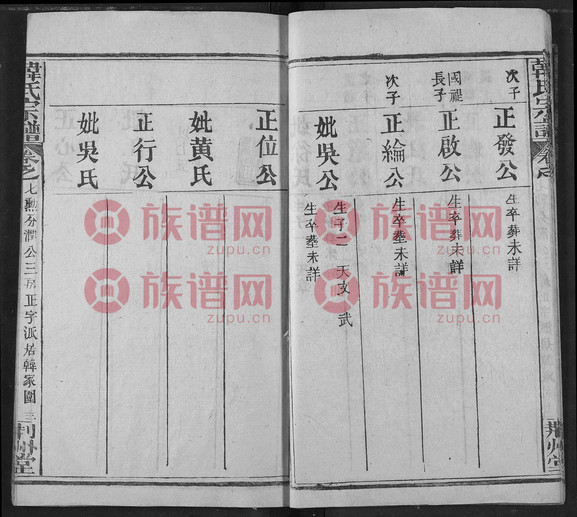 韓氏宗譜
次子
正發公
生卒葬未詳
國禔
長子
正啟公
生卒葬未詳
次子
正綸公
生卒塟未詳
妣吳公
生子二 天文 武
生卒塟未詳
荆州堂
正位公
妣黄氏
正行公
妣吳氏
韓氏宗譜
卷之七
勲分潤公三房正字派居韓家圍
三
荆州堂
族谱网
zupu.cn
族谱网
zupu.cn
族谱网
zupu.cn
族谱网
zupu.cn
族谱网
zupu.cn
族谱网
zupu.cn